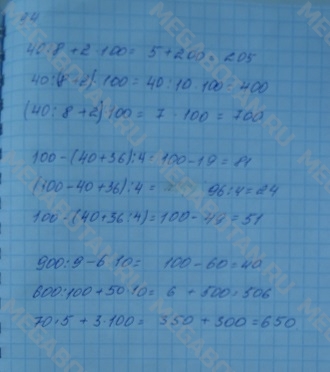 24
40:8 + 2·100 = 5 + 200 = 205
40:(8+2)·100 = 40:10·100 = 400
(40:8+2)·100 = 7·100 = 700
100-(40+36):4 = 100-19 = 81
(100-40+36):4 = 96:4 = 24
100-(40+36:4) = 100-49 = 51
900:9-6·10 = 100-60 = 40
600:100+50·10 = 6 + 500 = 506
70·5 + 3·100 = 350 + 300 = 650
MEGABOTAN.RU